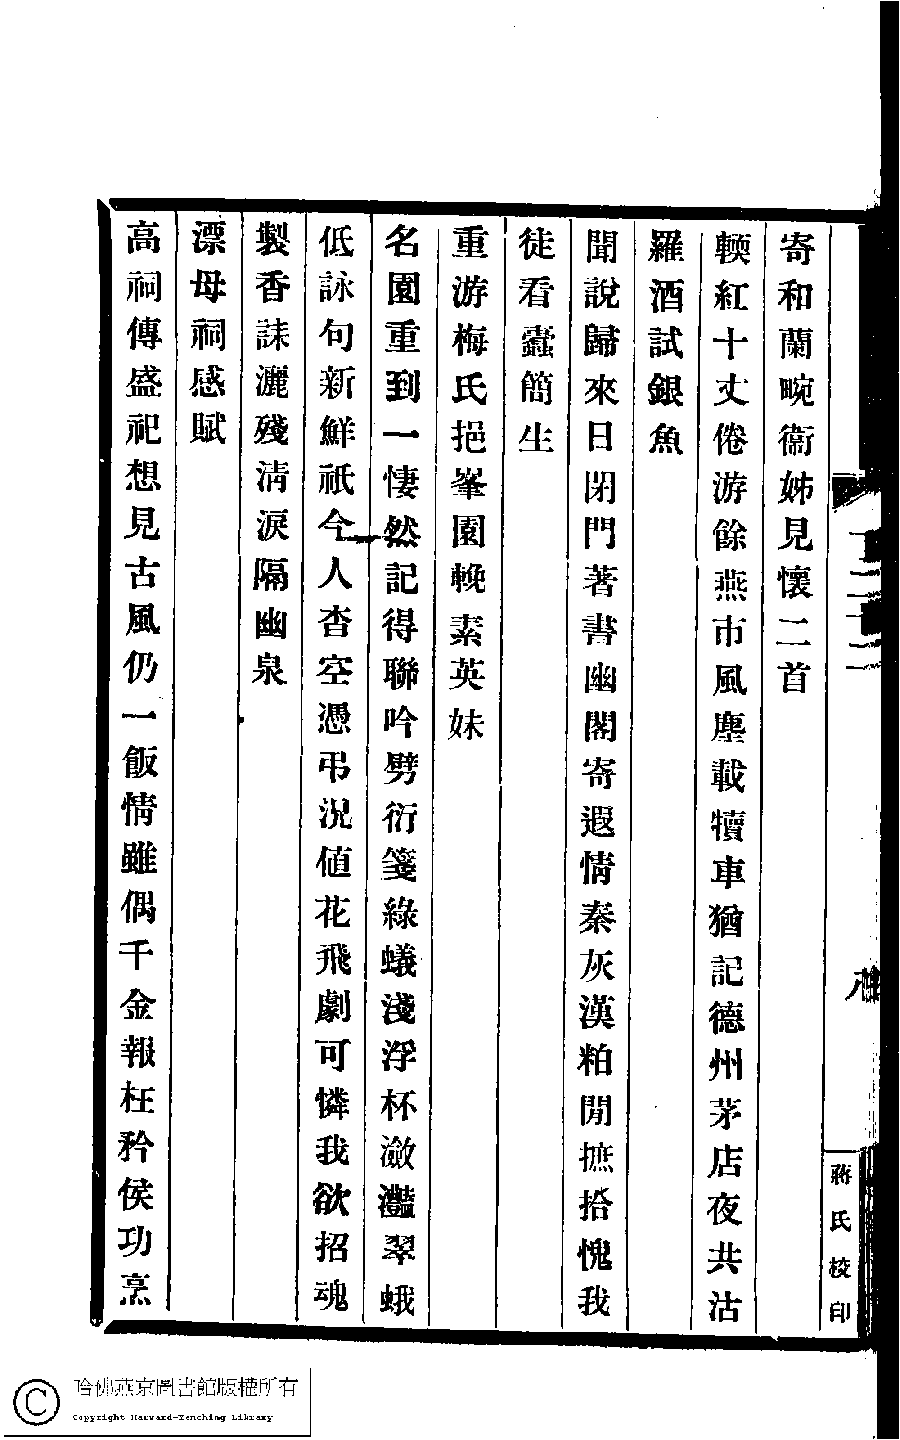 寄和蘭畹衞姊見懷二首
輭紅十丈倦游餘燕市風塵載犢車猶記德州茅店夜共沽
羅酒試銀魚
聞說歸來日閉門著書幽閣寄遐情秦灰漢粕閒摭拾愧我
徒看蠹簡生
重游梅氏挹峯園輓素英妹
名園重到一悽然記得聯吟劈衍箋綠蟻淺浮杯瀲灩翠蛾
低詠句新鮮祇今人杳空憑弔況値花飛劇可憐我欲招魂
製香誄灑殘淸淚隔幽泉
漂母祠感賦
高祠傳盛祀想見古風仍一飯情雖偶千金報枉矜侯功烹
蔣氏校印
哈佛燕京圖書館版權所有
Copyright Harvard-Yenching Library